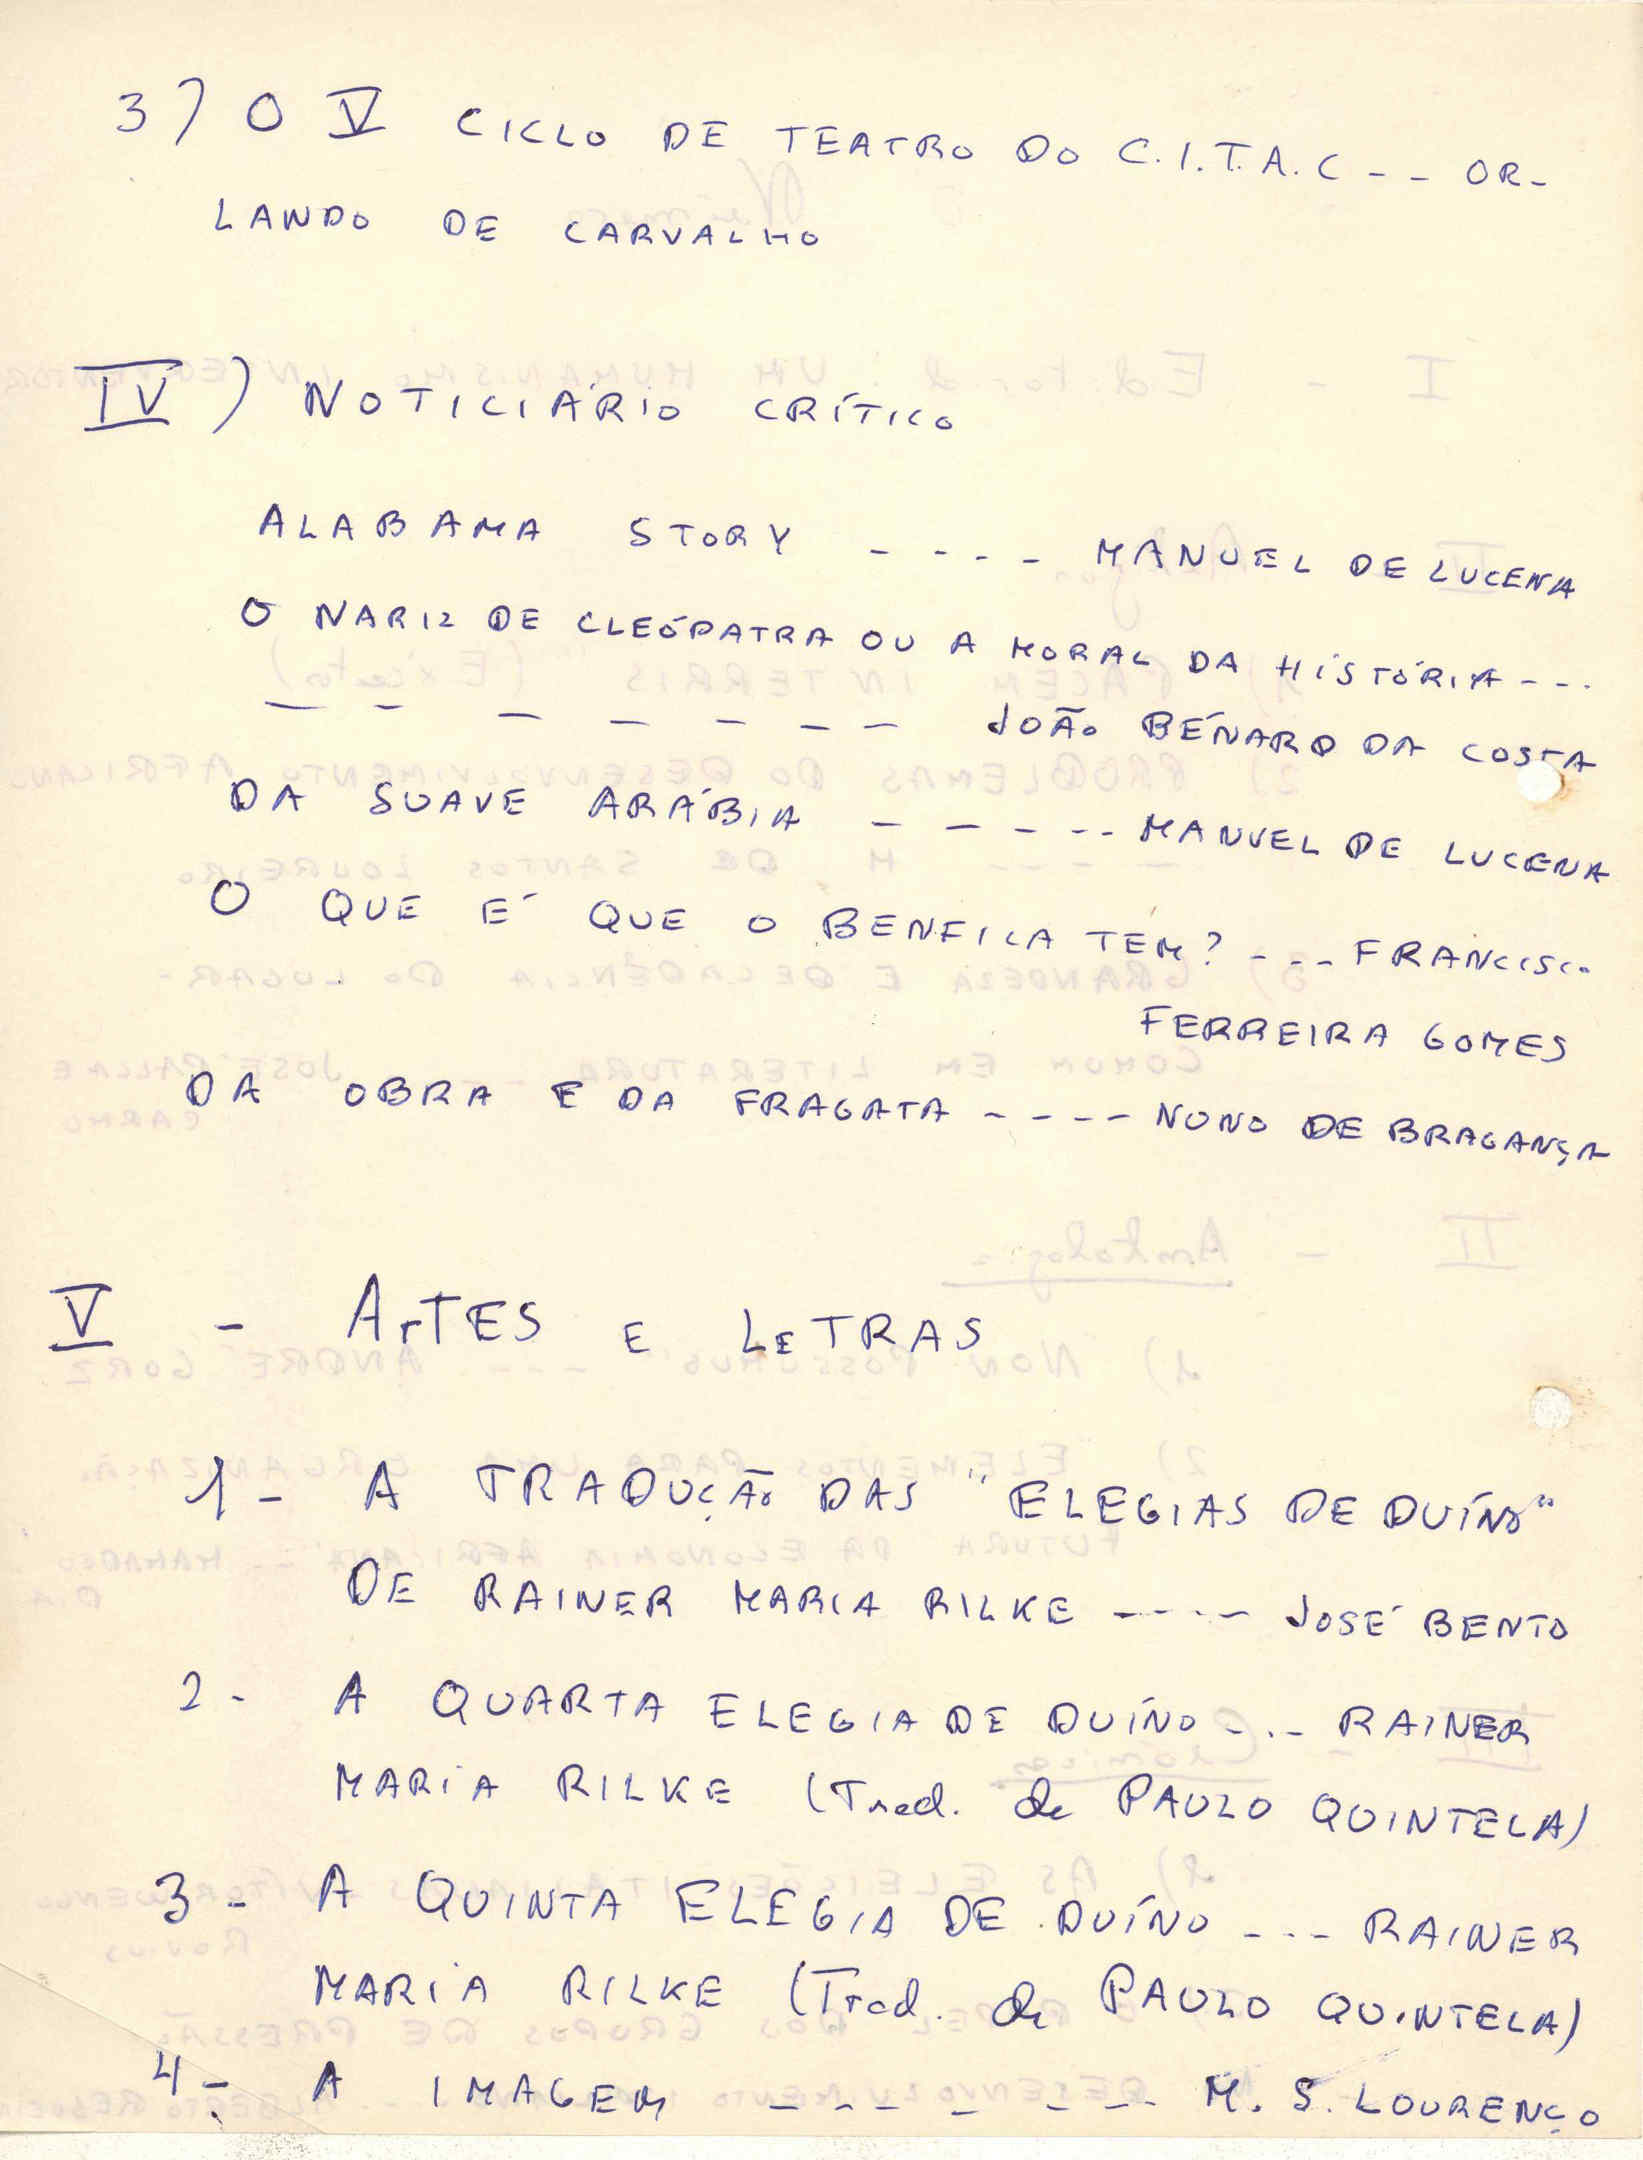 3) O V CICLO DE TEATRO DO C.I.T.A.C -- OR-
LANDO DE CARVALHO
IV) NOTICIÁRIO CRÍTICO
ALABAMA STORY ---- MANUEL DE LUCENA
O NARIZ DE CLEÓPATRA OU A MORAL DA HISTÓRIA ---
------- JOÃO BÉNARD DA COSTA
DA SUAVE ARÁBIA ----- MANUEL DE LUCENA
O QUE É QUE O BENFICA TEM? --- FRANCISCO
FERREIRA GOMES
DA OBRA E DA FRAGATA ---- NUNO DE BRAGANÇA
V - ARTES E LETRAS
1- A TRADUÇÃO DAS "ELEGIAS DE DUÍNO"
DE RAINER MARIA RILKE ---- JOSÉ BENTO
2- A QUARTA ELEGIA DE DUÍNO --- RAINER
MARIA RILKE (Trad. de PAULO QUINTELA)
3- A QUINTA ELEGIA DE DUÍNO --- RAINER
MARIA RILKE (Trad. de PAULO QUINTELA)
4- A IMAGEM ------- M. S. LOURENÇO